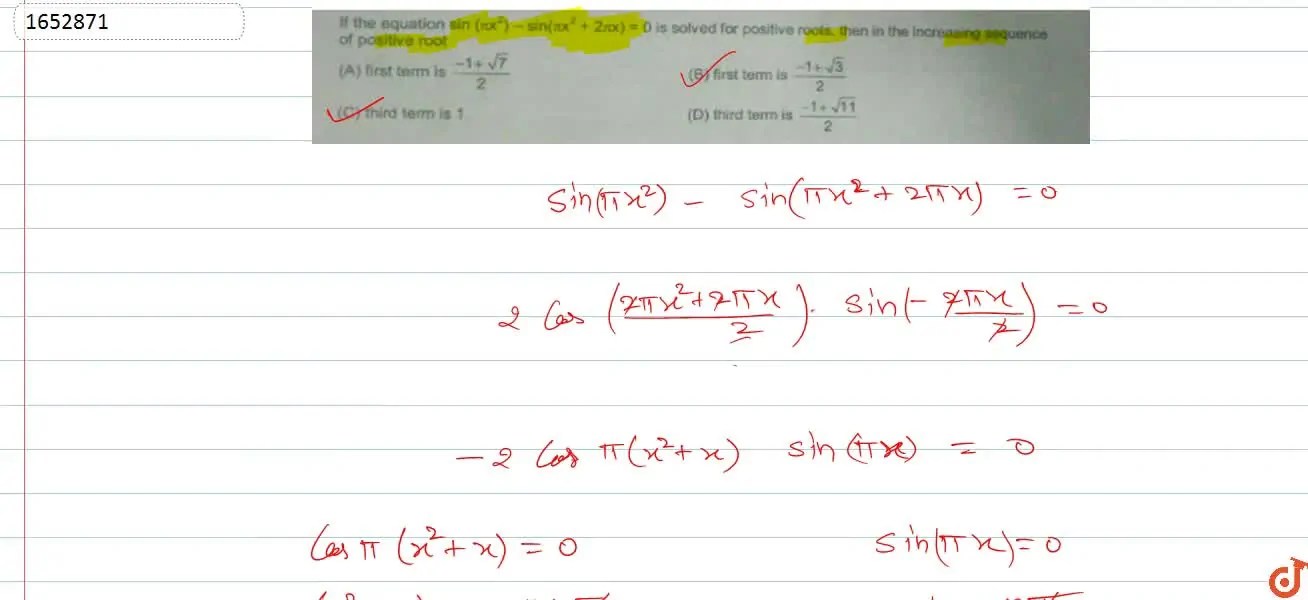 1652871
If the equation sin (πx²) – sin(πx² + 2πx) = 0 is solved for positive roots, then in the increasing sequence
of positive root
(A) first term is (-1+√7)/2
(B) first term is (-1+√3)/2
(C) third term is 1
(D) third term is (-1+√11)/2
Sin(πx²) – Sin(πx² + 2πx) = 0
2 Cos ((2πx²+2πx)/2) . Sin(-2πx/2) = 0
-2 Cos π(x²+x) Sin(πx) = 0
Cos π(x²+x) = 0 Sin(πx) = 0